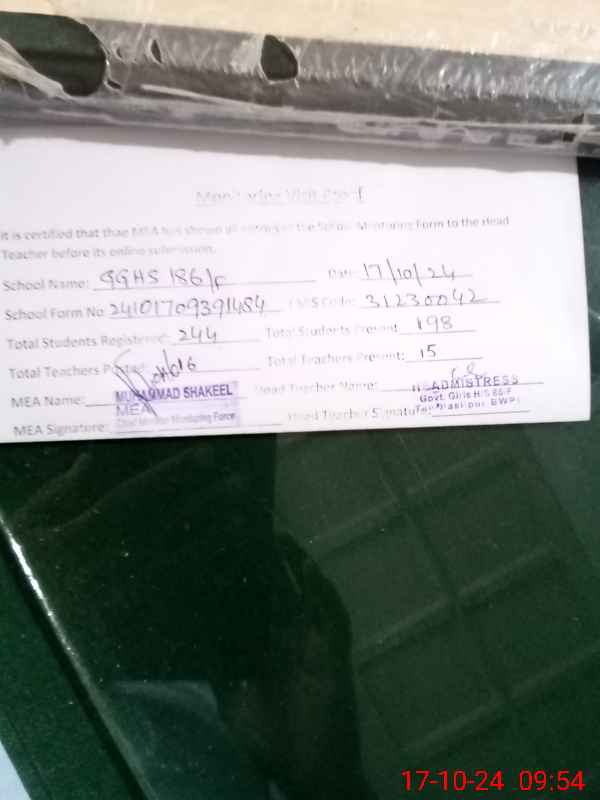 Monitoring Visit Proof
It is certified that thae MEA has shown all entries in the School Monitoring Form to the Head
Teacher before its online submission.
School Name: GGHS 186/P Date: 17/10/24
School Form No: 24101709391484 EMIS Code: 31230042
Total Students Registered: 244 Total Students Present: 198
Total Teachers Posted: 16 Total Teachers Present: 15
MEA Name: MUHAMMAD SHAKEEL Head Teacher Name: HEADMISTRESS
MEA Govt. Girls H/S
MEA Signature: Chief Minister Monitoring Force Head Teacher Signature: BWP
17-10-24 09:54